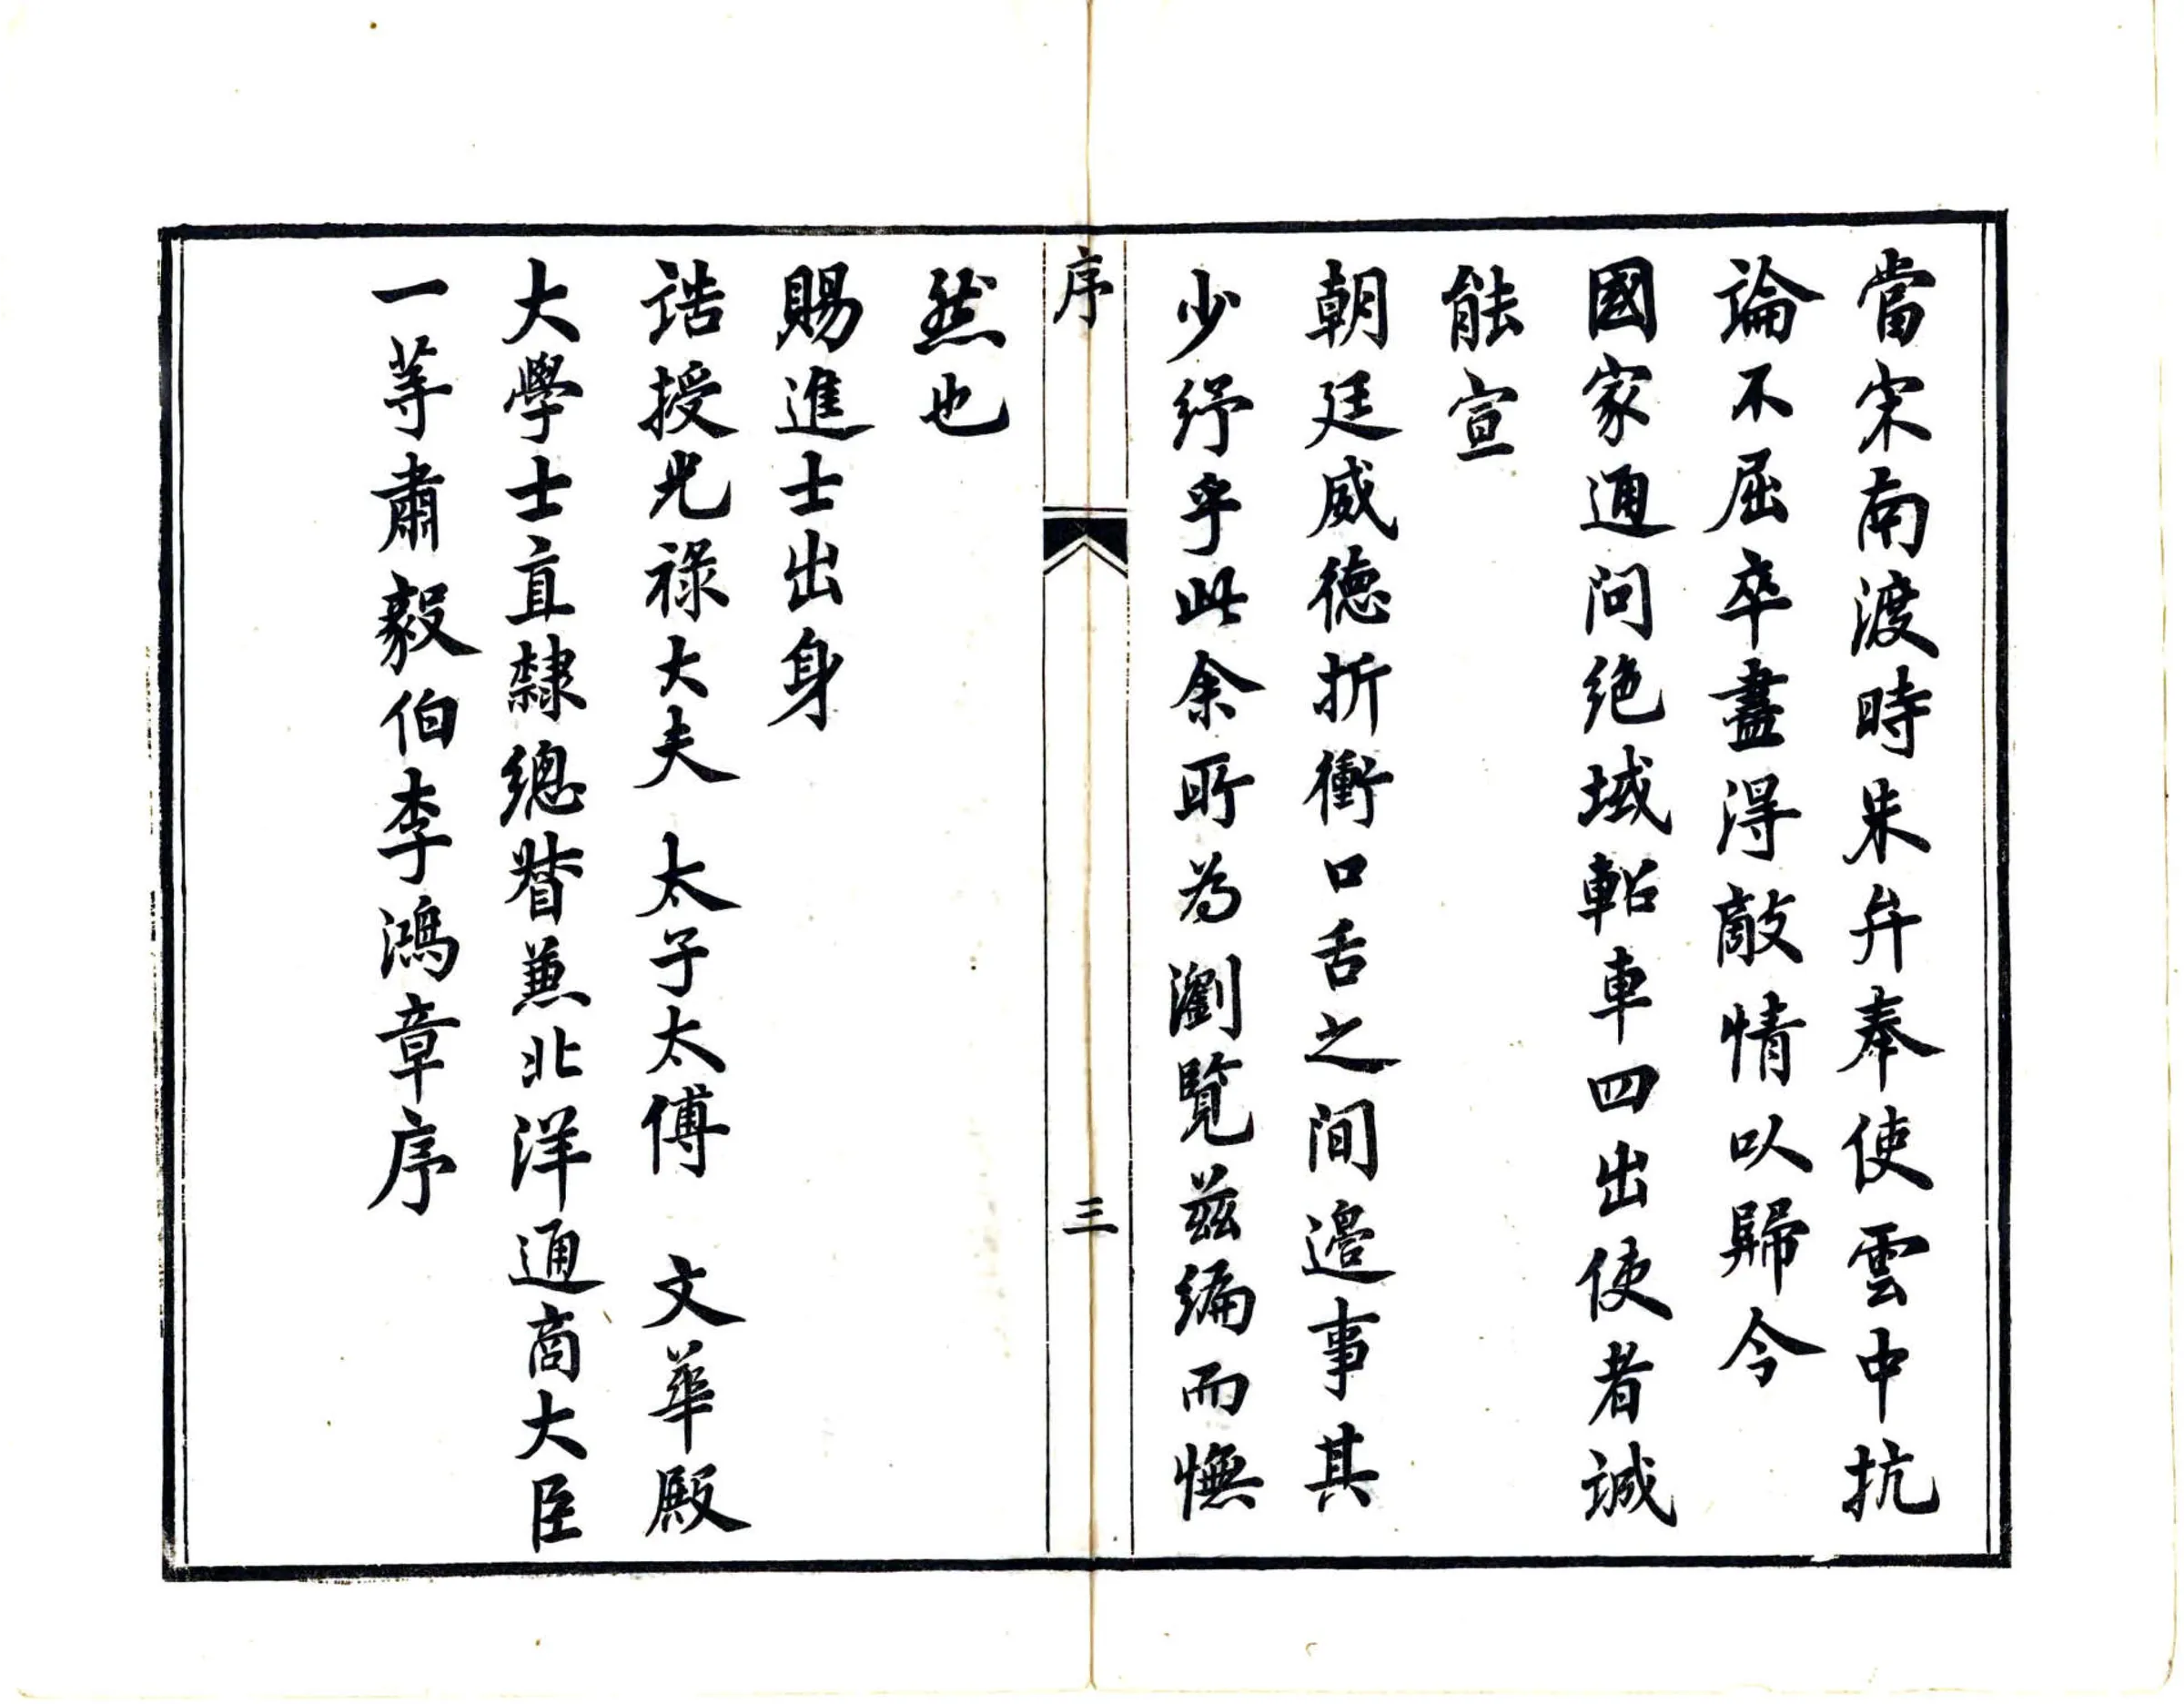 當宋南渡時朱弁奉使雲中抗
論不屈卒盡得敵情以歸今
國家通問絶域軺車四出使者誠
能宣
朝廷威德折衝口舌之間邉事其
少紓乎此余所為瀏覽茲編而憮
序
三
然也
賜進士出身
誥授光祿大夫 太子太傅 文華殿
大學士直隸總督兼北洋通商大臣
一等肅毅伯李鴻章序